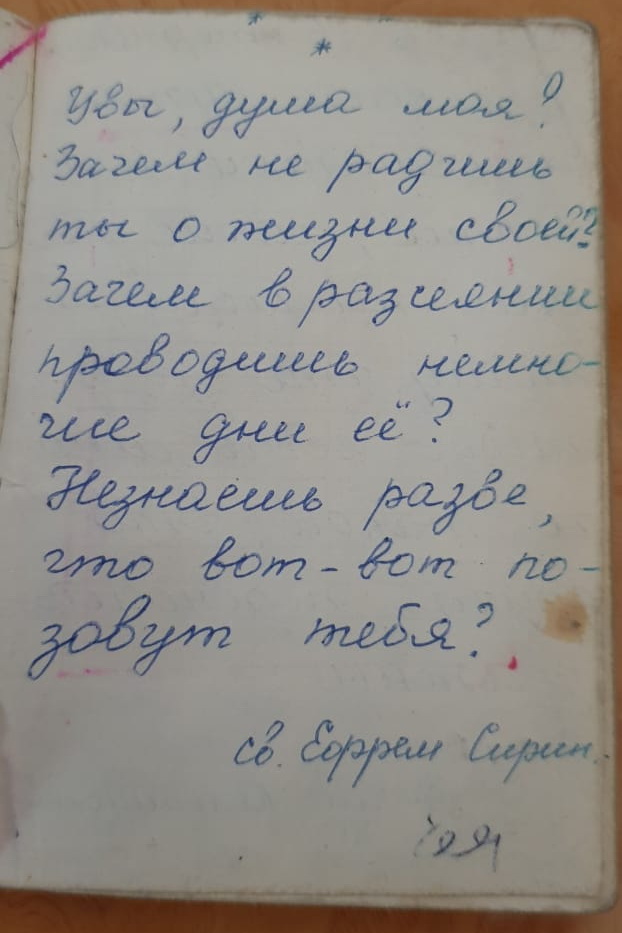 *
*
Увы, душа моя!
Зачем не радишь
ты о жизни своей?
Зачем в разсиянии
проводишь немно-
гие дни её?
Незнаешь разве,
что вот-вот по-
зовут тебя?
св. Ефрем Сирин.